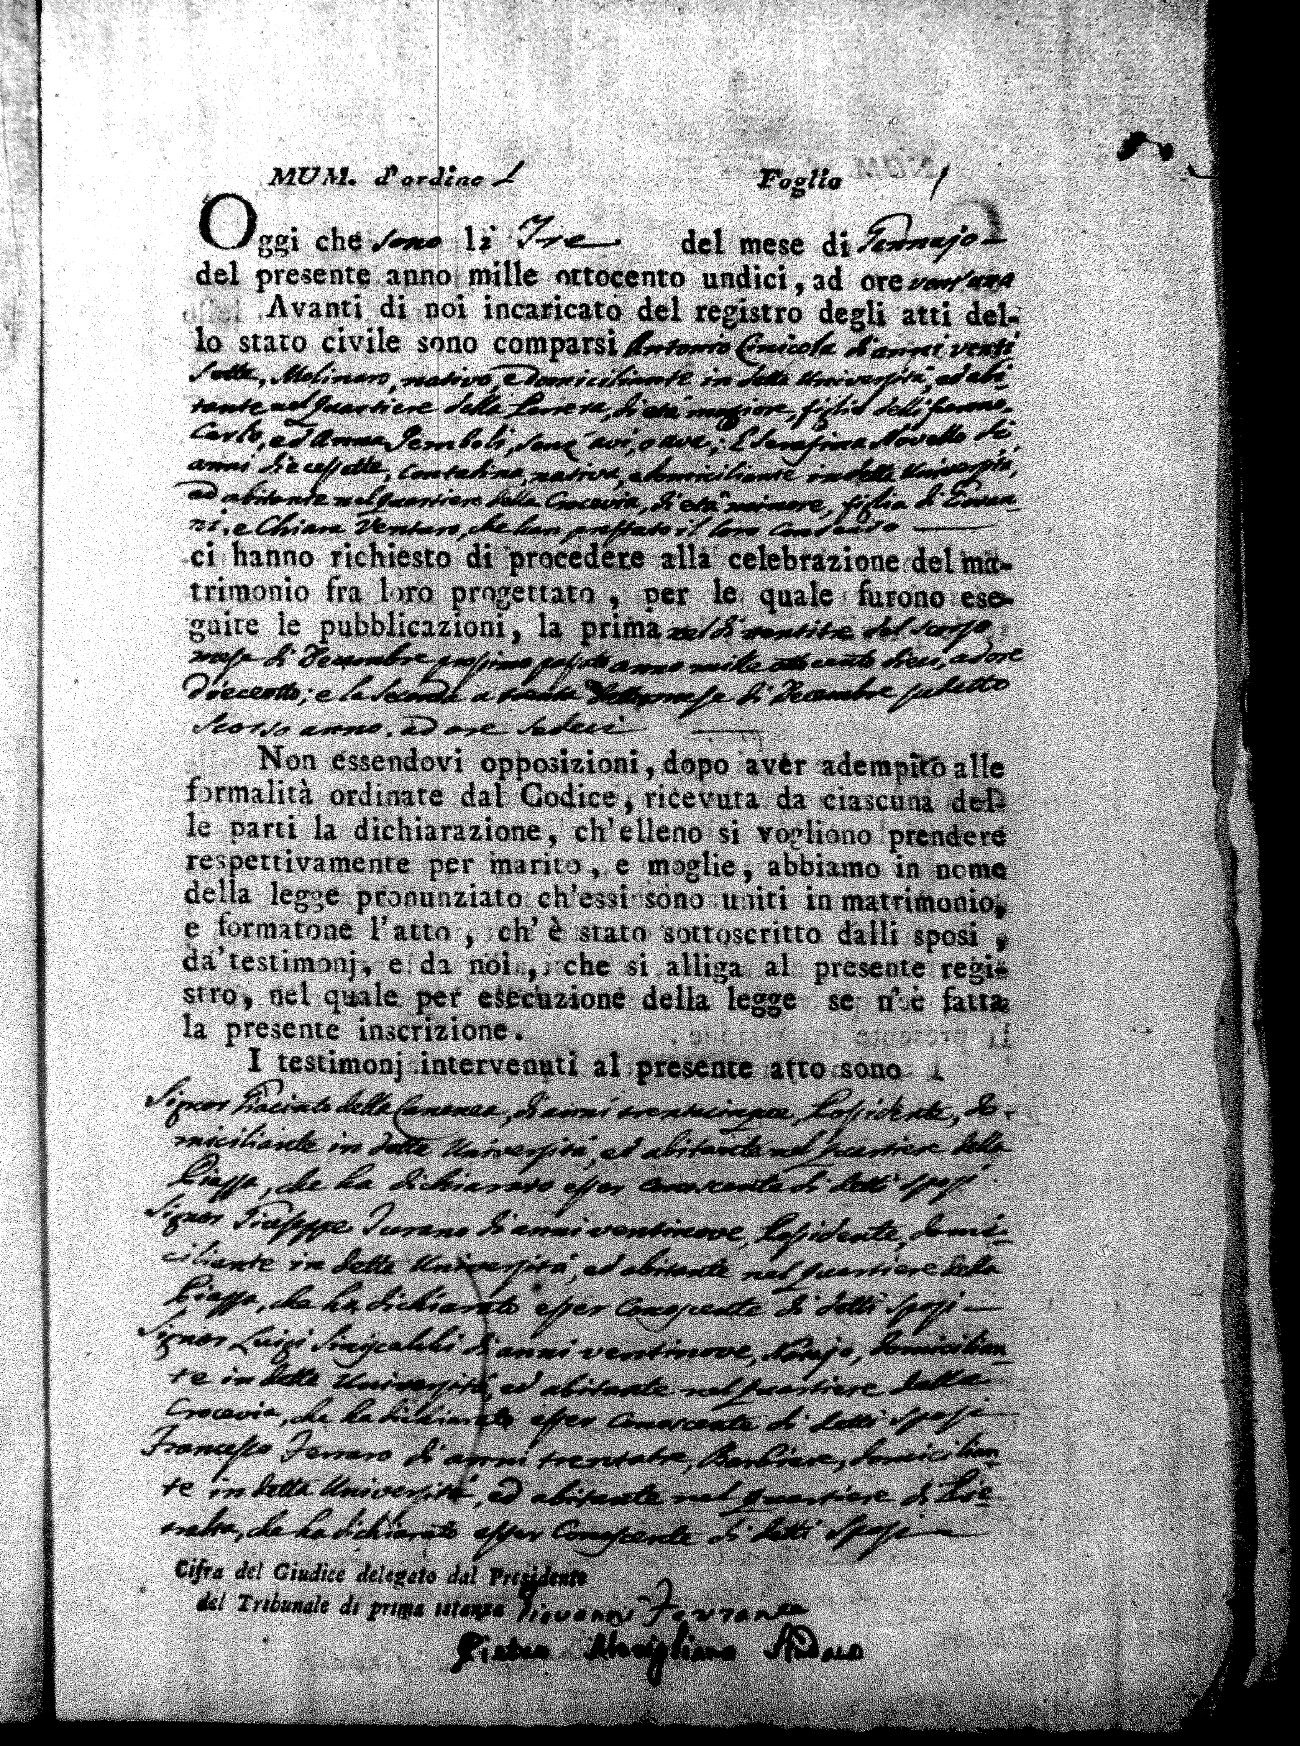 MUM. d'ordine 1 Foglio 1
Oggi che sono li Tre del mese di Gennajo
del presente anno mille ottocento undici, ad ore vent'una
Avanti di noi incaricato del registro degli atti del-
lo stato civile sono comparsi Antonio Cinicola d'anni venti
sette, Molinaro, nativo, e domiciliante in detta Università, ed abi
tante nel quartiere della, di età maggiore, figlio delli furono
Carlo, ed Anna, senz' avi, o ave; E Serafina Novello di
anni diecessette, Contadina, nativa, e domiciliante in detta Università,
ed abitante nel quartiere della Crocevia, di età minore, figlia di
e Chiara Venturo, che han prestato il loro Consenso
ci hanno richiesto di procedere alla celebrazione del ma-
trimonio fra loro progettato, per le quale furono ese-
guite le pubblicazioni, la prima nel dì ventitre del scorso
mese di Decembre prossimo passato anno mille ottocento dieci, ad ore
Dieceotto; e la seconda a trenta mese di Decembre suddetto
Scorso anno, ad ore Sedeci
Non essendovi opposizioni, dopo aver adempito alle
formalità ordinate dal Codice, ricevuta da ciascuna del-
le parti la dichiarazione, ch'elleno si vogliono prendere
respettivamente per marito, e moglie, abbiamo in nome
della legge pronunziato ch'essi sono uniti in matrimonio,
e formatone l'atto, ch'è stato sottoscritto dalli sposi,
da' testimonj, e da noi, che si alliga al presente regi-
stro, nel quale per esecuzione della legge se n'è fatta
la presente inscrizione.
I testimonj intervenuti al presente atto sono
Signor Giacinto della Cananea, d'anni trentacinque, Possidente, do-
miciliante in detta Università, ed abitante nel quartiere della
Piazza, che ha dichiarato esser conoscente di detti sposi
Signor Giuseppe Turano d'anni ventinove, Possidente, domi-
ciliante in detta Università, ed abitante nel quartiere della
Piazza, che ha dichiarato esser Conoscente di detti sposi
Signor Luigi Siniscalchi d'anni ventinove, Notajo, domicilian
te in detta Università, ed abitante nel quartiere della
Crocevia, che ha dichiarato esser Conoscente di detti sposi
Francesco Ferraro di anni trentatre, Barbiere, domicilian
te in detta Università, ed abitante nel quartiere di
che ha dichiarato esser Conoscente di detti sposi
Cifra del Giudice delegato dal Presidente
del Tribunale di prima istanza Giovanni
Pietro Sindaco